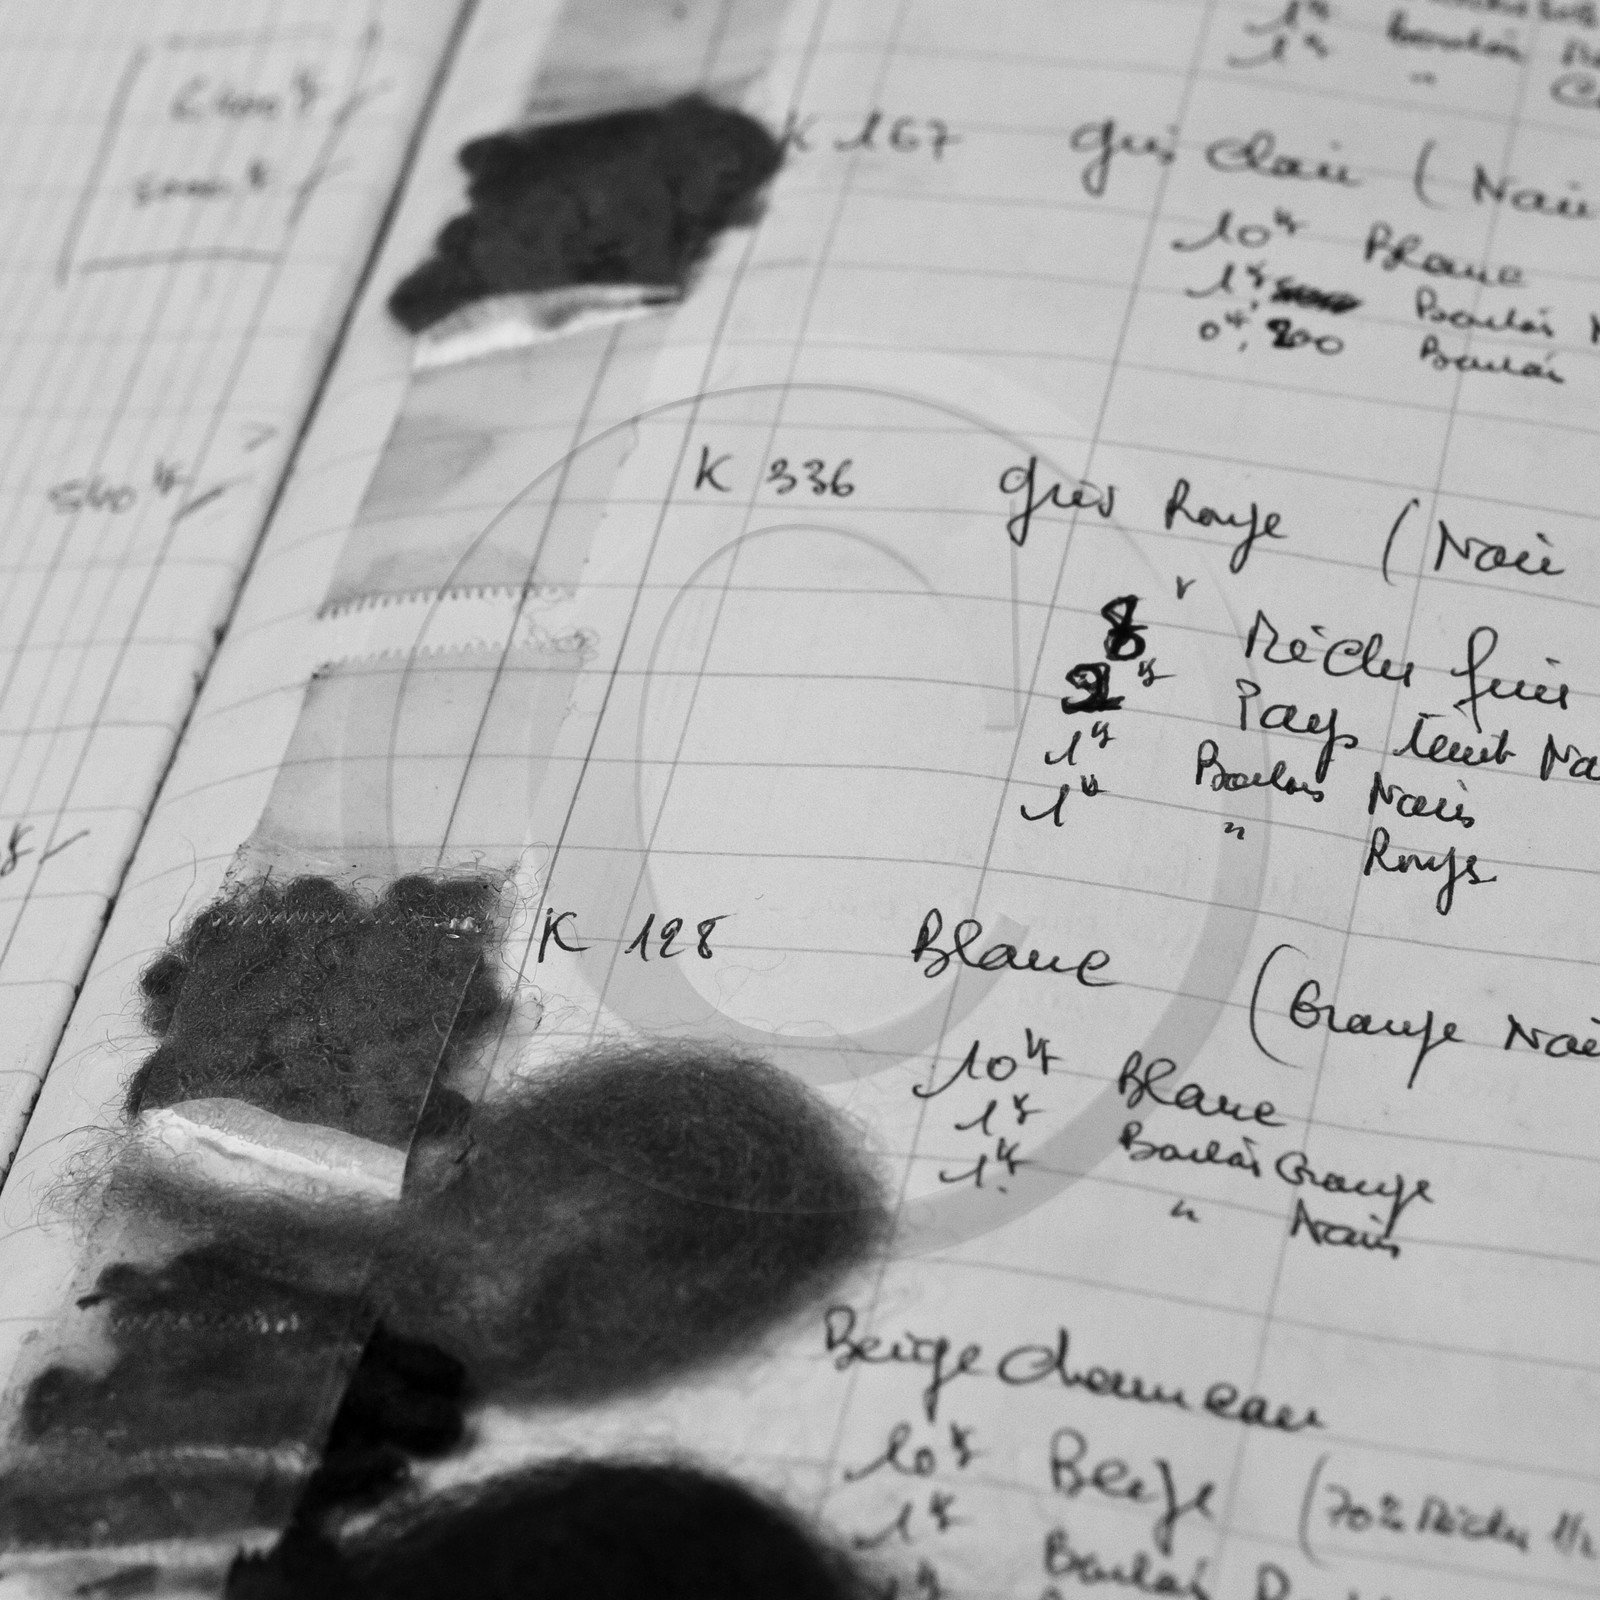 1k Boulois
1k "
K 167 Gris Clair ( Noir
10k Blanc
1k, Boulois
0k, 200 Boulois
540k
K 336 Gris Rouge ( Noir
8k Mèche fine
2k Pays teint No
1k Boulois Noir
1k " Rouge
K 128 Blanc ( Orange Noi
10k Blanc
1k Boulois Orange
1k " Noir
Beige chameau
10k Beige ( 70% Mèche 1/2
1k Boulois